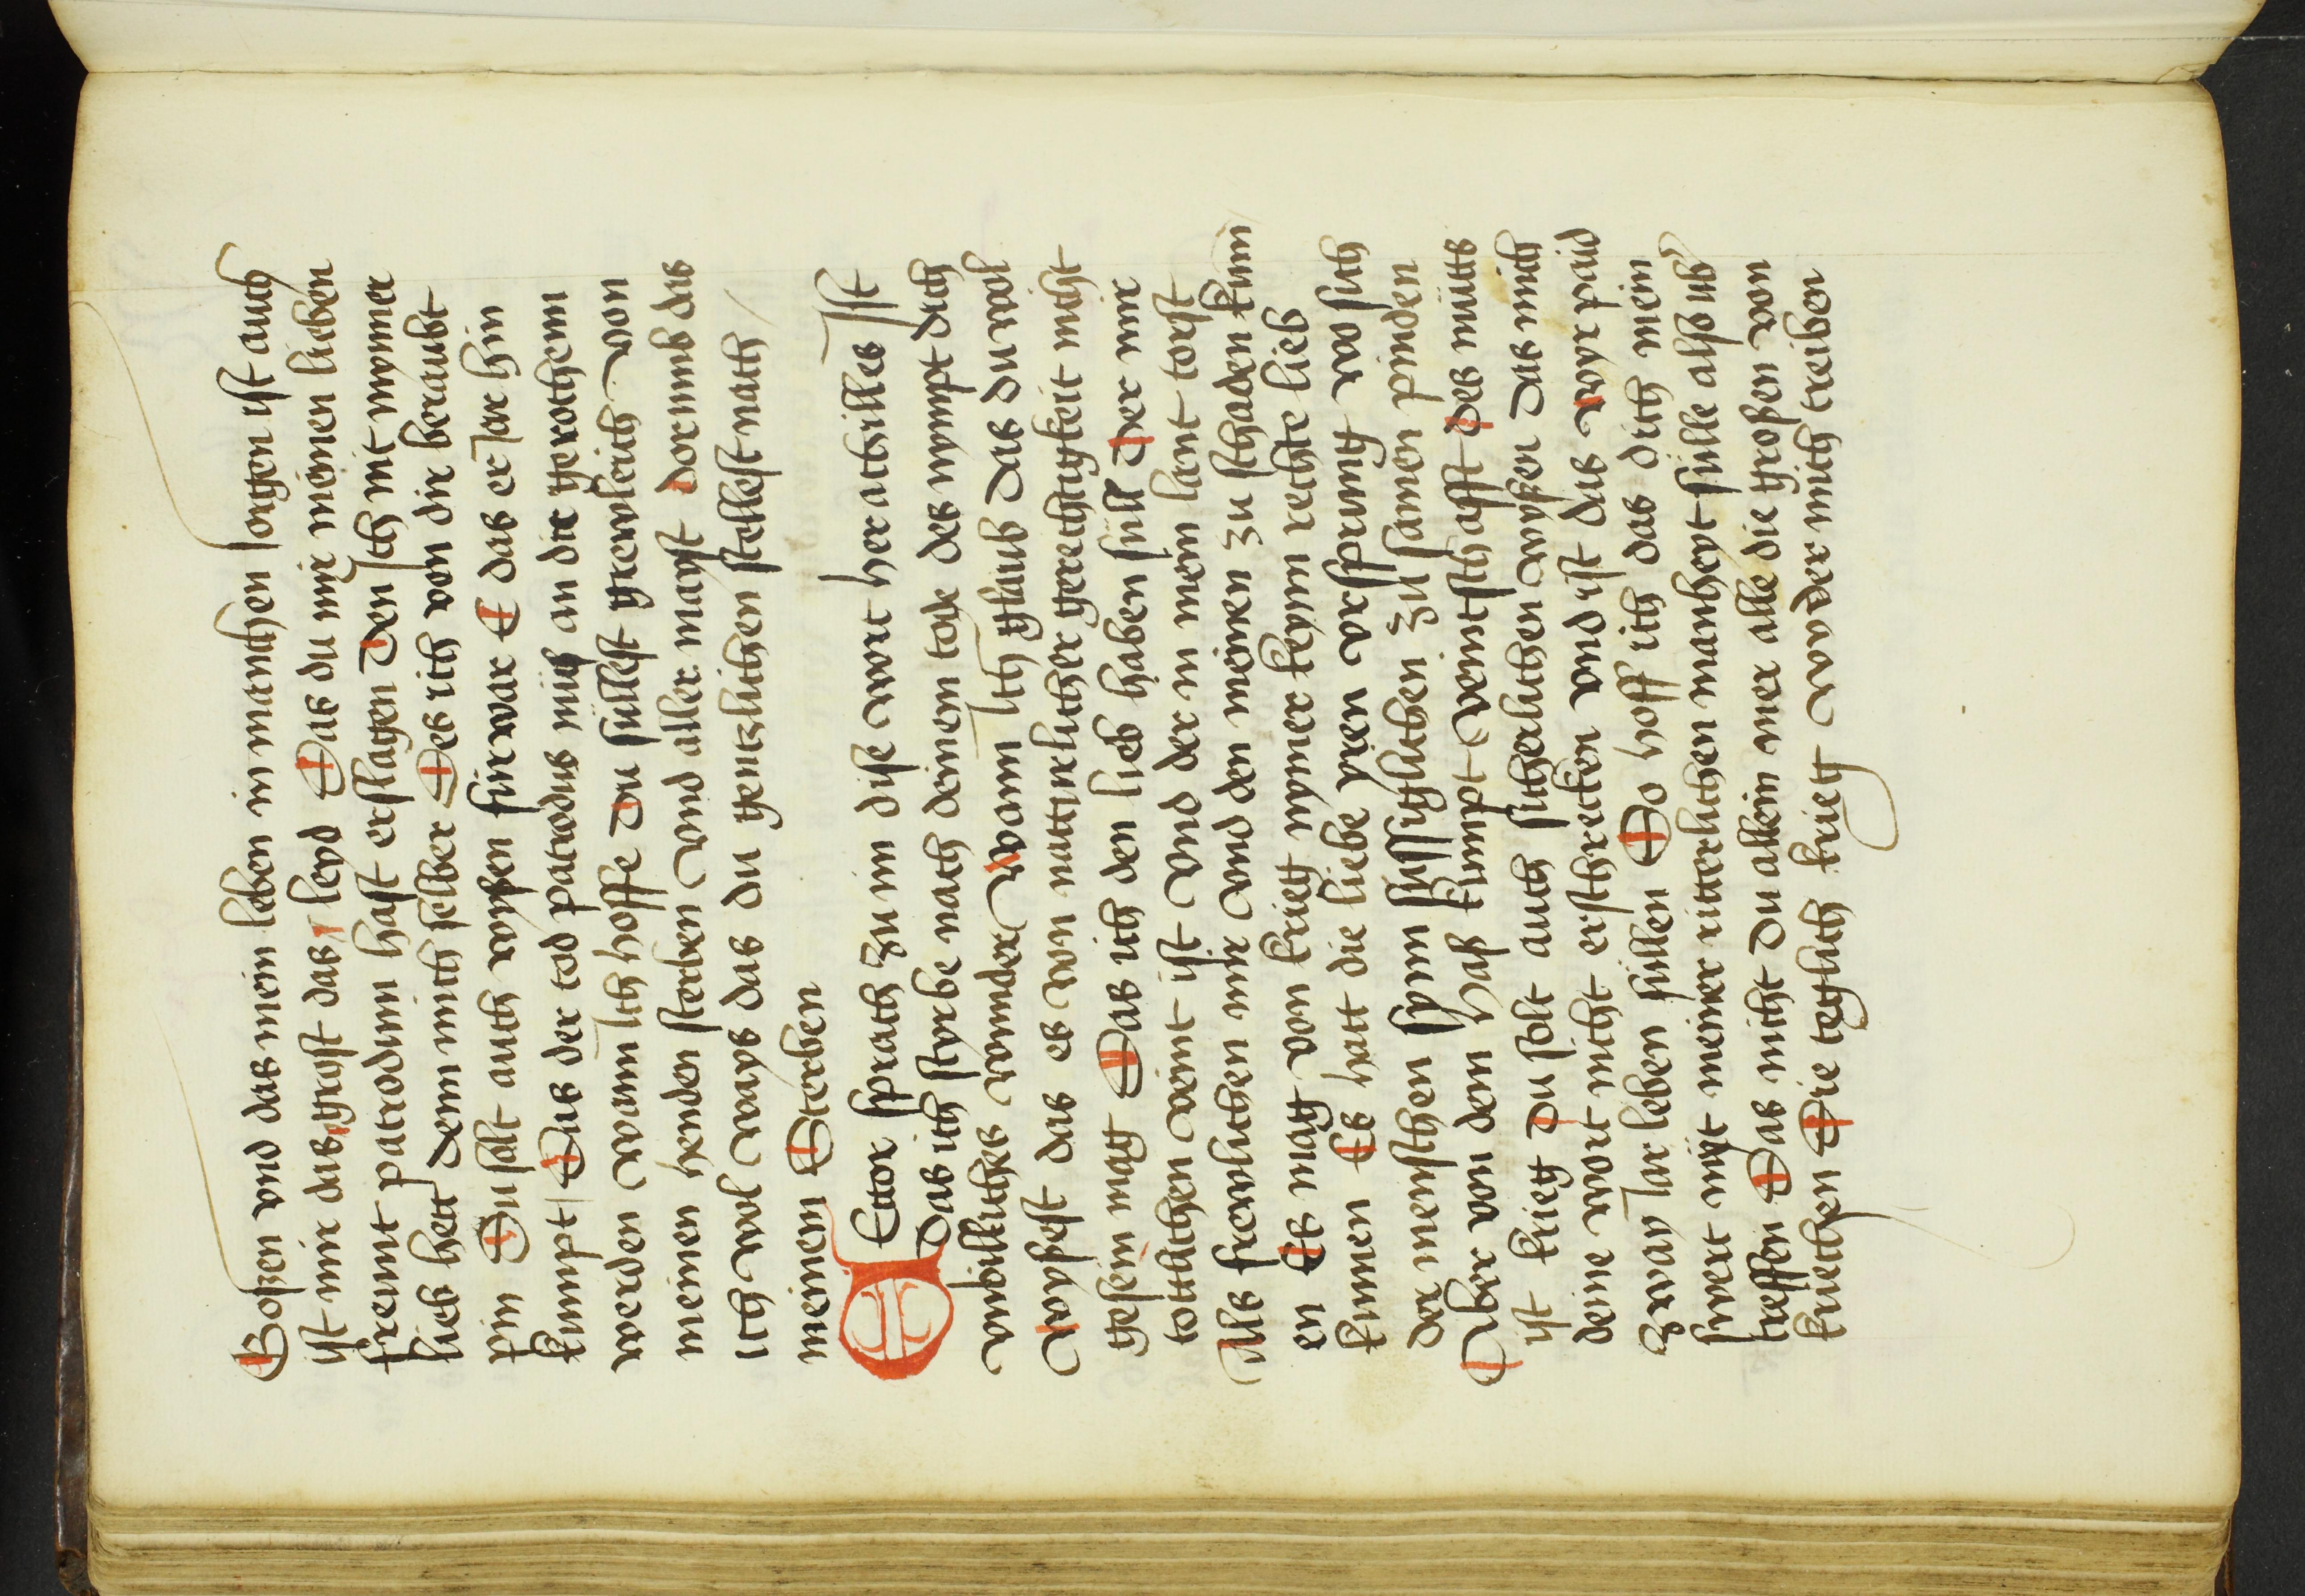 Großen vnd das mein leben in manchen sorgen ist auch
ist mir das grost das leyd Das du mir meinen lieben
freunt patrodum hast erslagen Den Ich nit mynner
lieb hett denn mich selber Des ich von dir beraubt
pin Du salt auch wyssen fürwar E das er Jar hin
kumpt Das der tod patrodus müs an dir gerochenn
werden wann Ich hoffe Du süllest grewleich von
meinen henden sterben vnd aller mayst dorumb das
ich wol ways das du gentzlichen stellest nach
meinem Sterben
Ettor sprach zu im dise wort her achilles Ist
Das ich styrbe nach deinem tode des nympt dich
vnbillichs wunder wann Ich glaub das du wol
wyssest das es von natturlicher gerechtigkeit nicht
gesein mag Das ich den lieb haben sül Der mir
tottlichen veint ist vnd der in mein lant torst
als frewlichen mir vnd den meinen zu schaden kum
en Es mag von krieg nymer keynn rechte lieb
kumen Es hatt die liebe yren vrsprung wo sich
der menschen synn süssiglichen zu samen pinden
Aber von dem Haß kumpt veintschafft Des nütts
ist krieg Du solt auch sicherlichen wyssen das mich
deine wort nicht erschrecken vnd ist das wyr paid
zway Jar leben süllen So hoff ich das dich mein
swert mit meiner ritterlichen manheyt sülle also üb
treffen Das nicht du allein mer alle die großen von
kriechen Die teglich krieg wyder mich treiben